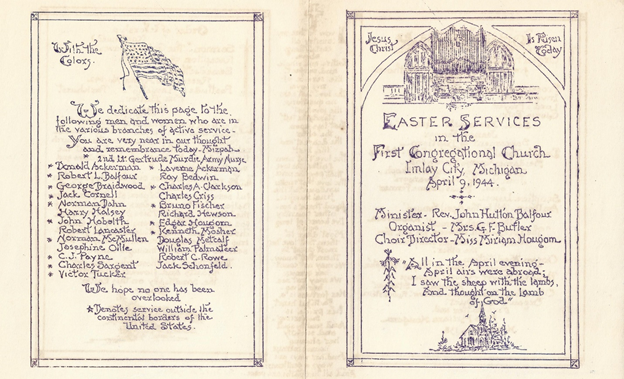 With the
Colors.
We dedicate this page to the
following men and women who are in
the various branches of active service.
You are very near in our thought
and remembrance today. Mizpah
* 2nd Lt. Gertrude Murdie, Army Nurse
* Donald Ackerman
* Robert L. Balfour
* George Braidwood
* Jack Cornell
* Norman Dahn
Harry Halsey
* John
Robert Lancaster
* Norman McMullen
Josephine
* C.J. Payne
* Charles Sargent
* Victor Tucker
* Laverne Ackerman
Roy Bedwin
* Charles A. Clarkson
Charles Criss
* Bruno Fischer
Richard Hewson
* Edgar Hougom
* Kenneth Mosher
Douglas Metcalf
William Palmateer
Robert C. Rowe
Jack Schonfeld.
We hope no one has been
overlooked
* Denotes service outside the
continental borders of the
United States.
Jesus
Christ
Is Risen
Today
EASTER SERVICES
in the
First Congregational Church
Imlay City, Michigan
April 9, 1944.
Minister - Rev. John Hutton Balfour
Organist - Mrs. G.F. Butler
Choir Director - Miss Miriam Hougom.
"All in the April evening-
April airs were abroad;
I saw the sheep with the lambs,
And thought on the Lamb
of God."